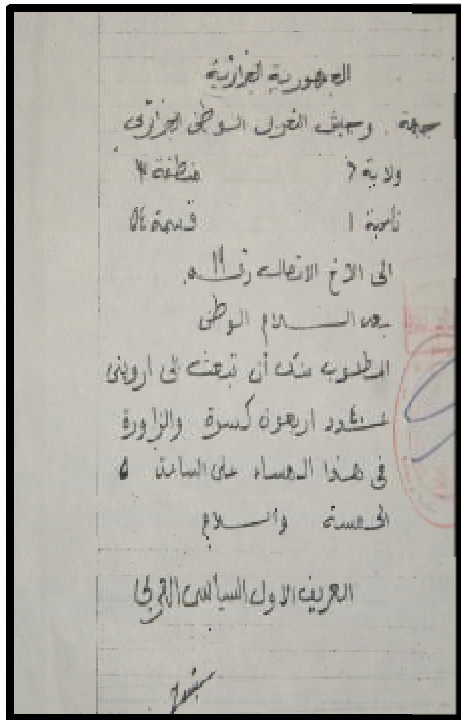 الجمهورية الجزائرية
جبهة وجيش التحرير الوطني الجزائري
ولاية 2 منطقة 3
ناحية 1 قسمة 54
الى الأخ الاتصال رقم
بعد السلام الوطني
المطلوب منك أن تبعث لي
اربعون كسرة والزاورة
في هذا المساء على الساعة 5
الخمسة والسلام
العريف الاول السياسي